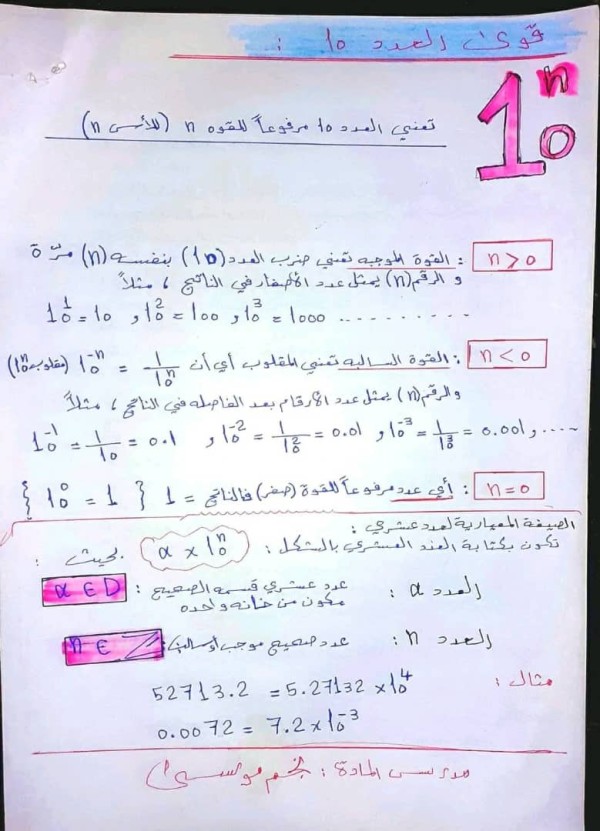 قوى العدد 10 :
10^n
تعني العدد 10 مرفوعاً للقوه n (للأس n)
n > 0 : القوة الموجبه تعني ضرب العدد (10) بنفسه (n) مرّة
و الرقم (n) يمثل عدد الأصفار في الناتج ، مثلاً
10^1 = 10 و 10^2 = 100 و 10^3 = 1000 ..........
n < 0 : القوة السالبه تعني المقلوب أي أن 10^-n = 1/10^n (مقلوب 10^n)
والرقم (n) يمثل عدد الأرقام بعد الفاصله في الناتج ، مثلاً
10^-1 = 1/10 = 0.1 و 10^-2 = 1/10^2 = 0.01 و 10^-3 = 1/10^3 = 0.001 و .....
n = 0 : أي عدد مرفوعاً للقوة (صفر) فالناتج = 1 { 10^0 = 1 }
الصيغة المعيارية لعدد عشري :
تكون بكتابة العدد العشري بالشكل : a × 10^n بحيث :
العدد a : عدد عشري قسمه الصحيح a ∈ D
مكون من خانه واحده
العدد n : عدد صحيح موجب أو سالب n ∈ Z
مثال : 52713.2 = 5.27132 × 10^4
0.0072 = 7.2 × 10^-3
مدرس المادة : نجم موسى